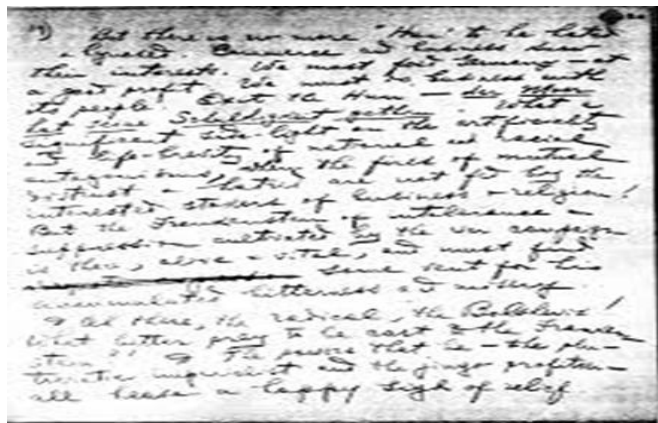 19) But there is no more "Hun" to be hated
& lynched. Commerce and business know
their interests. We must feed Germany — at
a good profit. We must do business with
its people. Exit the Hun — der Mohr
hat seine Schuldigkeit gethan. What a
significant side-light on the artificiality
and life-brevity of national and racial
antagonisms, when the fires of mutual
distrust & hatred are not fed by the
interested stokers of business & religion!
But the Frankenstein of intolerance &
suppression cultivated by the war campaign
is there, alive & vital, and must find
some vent for his
accumulated bitterness and misery.
Ah there, the radical, the Bolshevik!
What better prey to be cast to the Franken-
stein?
The powers that be — the plu-
tocratic imperialist and the jingo profiteer —
all heave a happy sigh of relief.